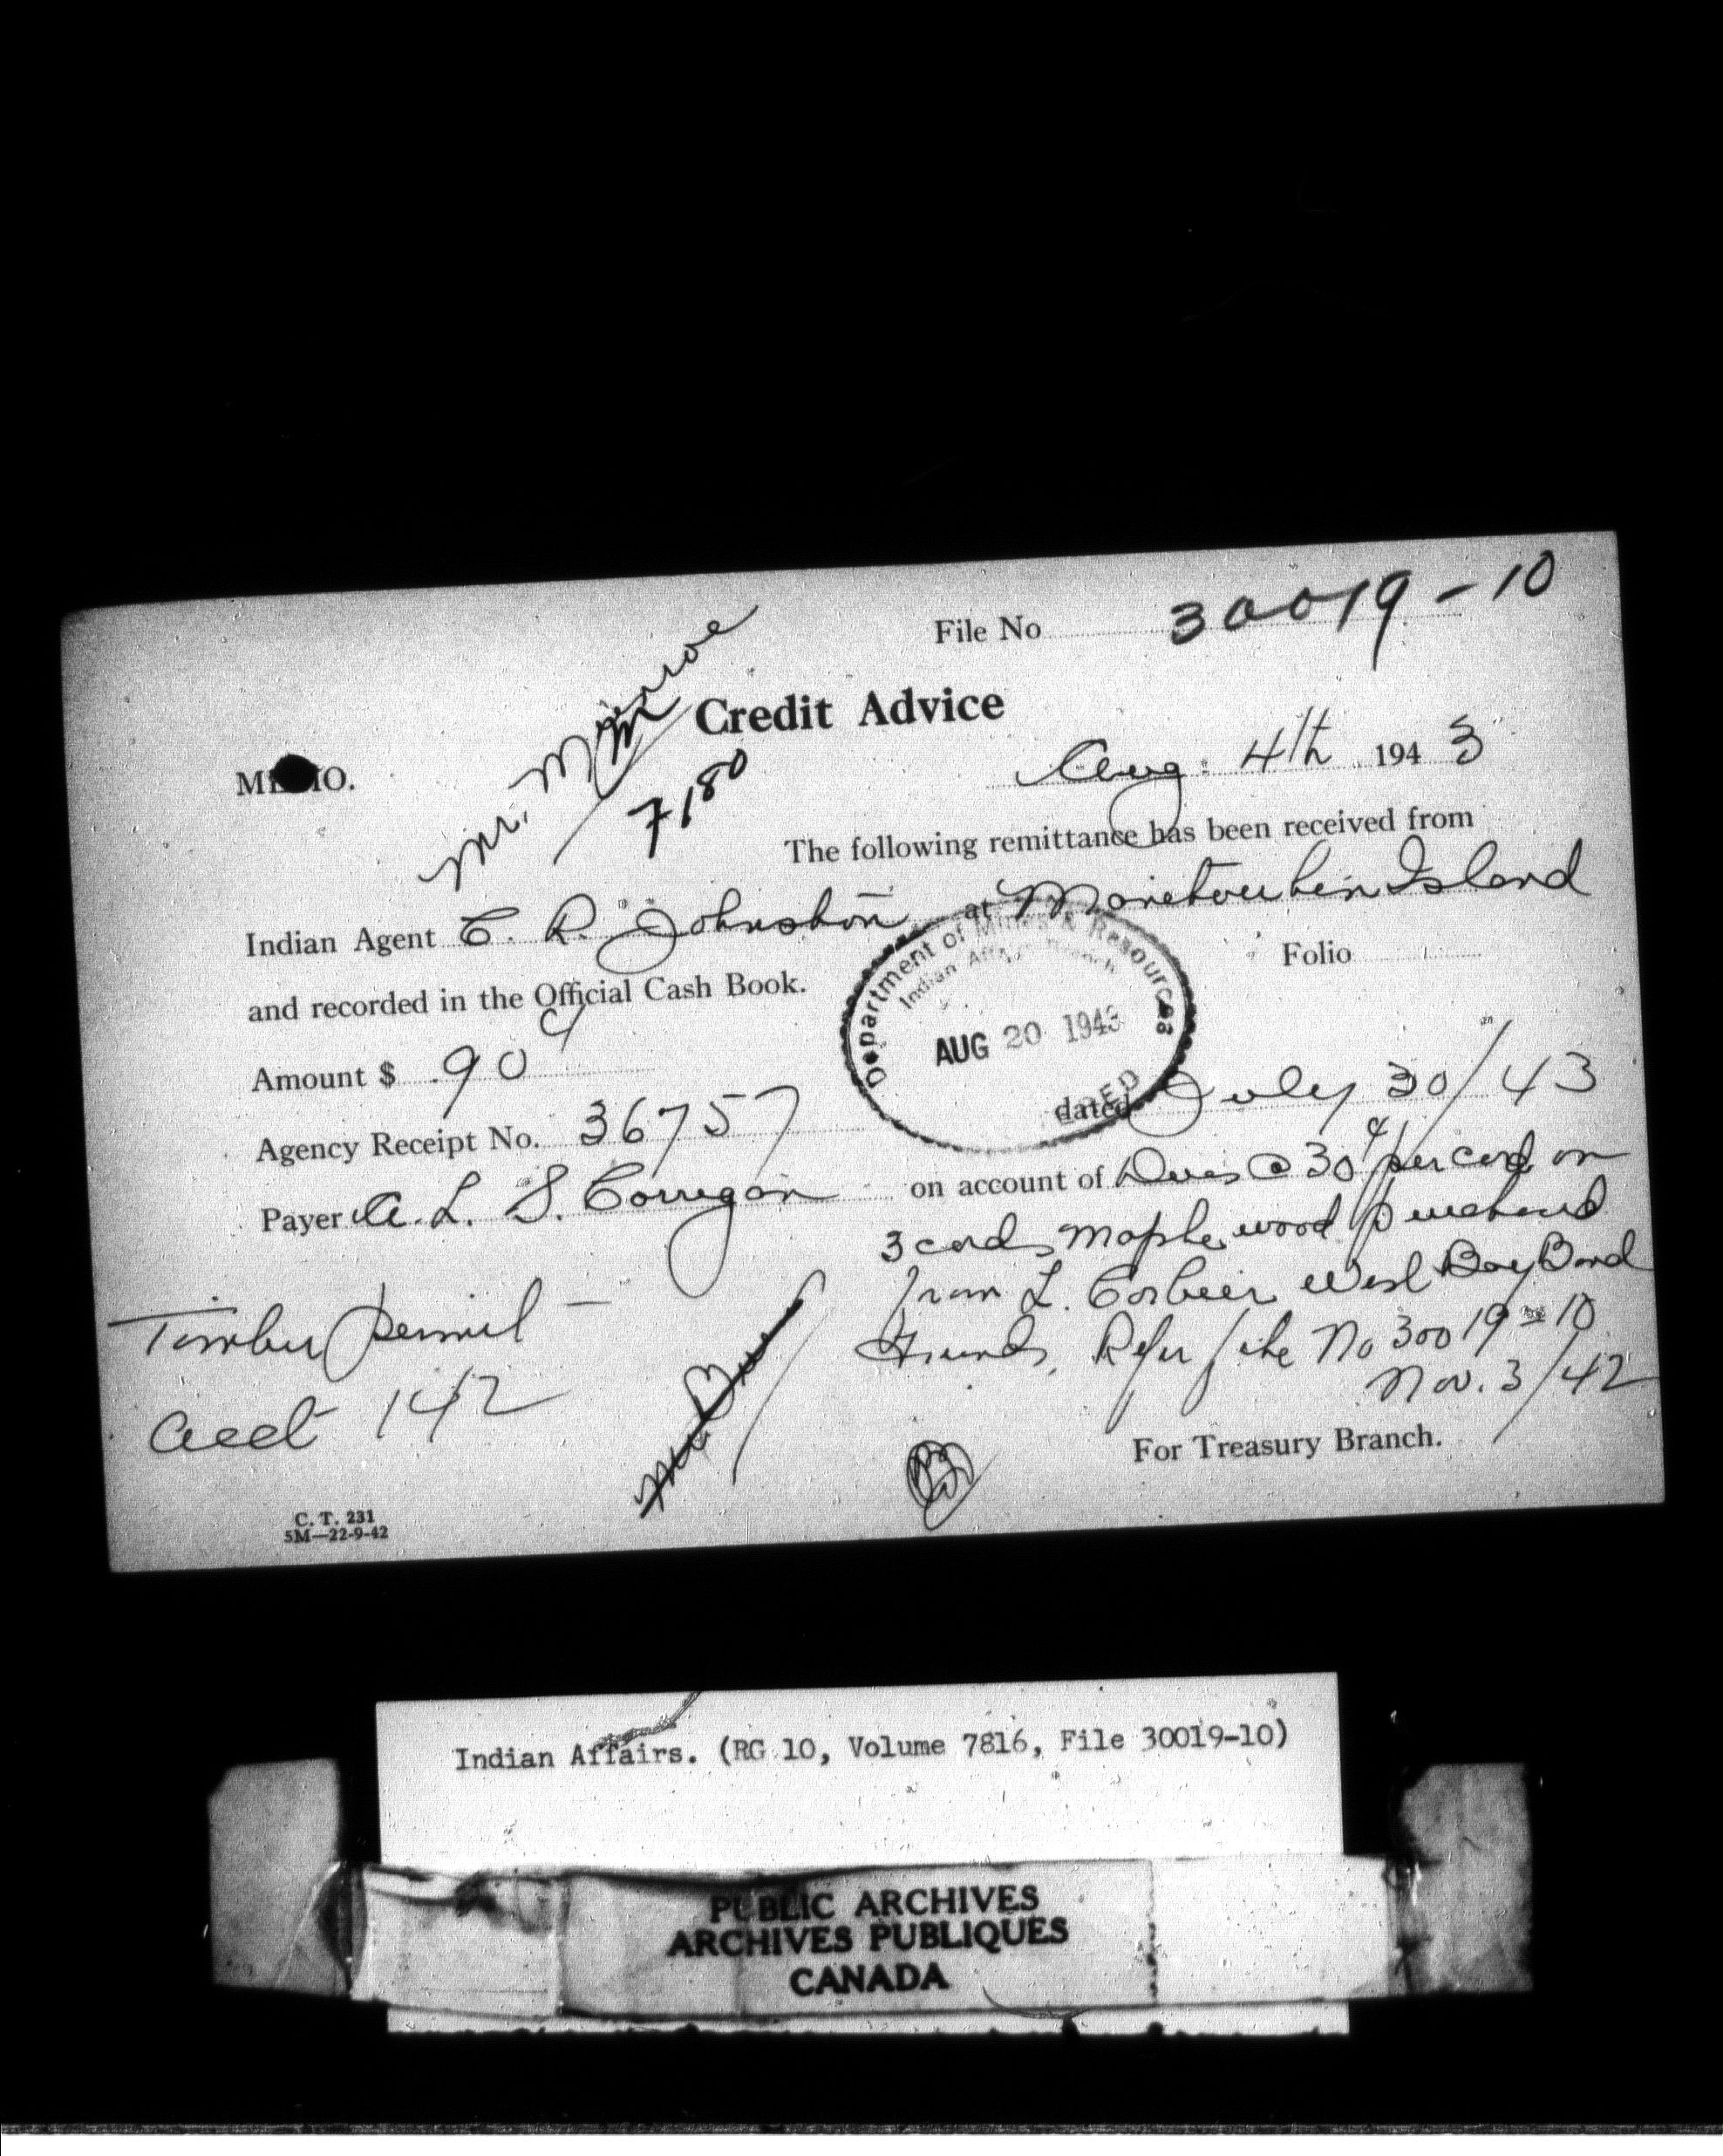 File No 30019-10
Credit Advice
Mr. Munroe
7,180
MEMO.
Aug. 4th 1943
The following remittance has been received from
Indian Agent C. R. Johnston at Manetoulin Island
and recorded in the Official Cash Book. Folio
Department of Mines & Resources
Indian Affairs Branch
AUG 20 1943
Amount $ .90¢
Agency Receipt No. 36757 dated July 30/43
Payer A. L. S. Corrigan on account of Dues @ 30¢ per cord on
3 cords maple wood purchased
from L. Corbiere West Bay Band
Funds, Refer file No 30019-10
Nov. 3/42
Timber permit -
acct 142
For Treasury Branch.
C. T. 231
5M—22-9-42
Indian Affairs. (RG 10, Volume 7816, File 30019-10)
PUBLIC ARCHIVES
ARCHIVES PUBLIQUES
CANADA